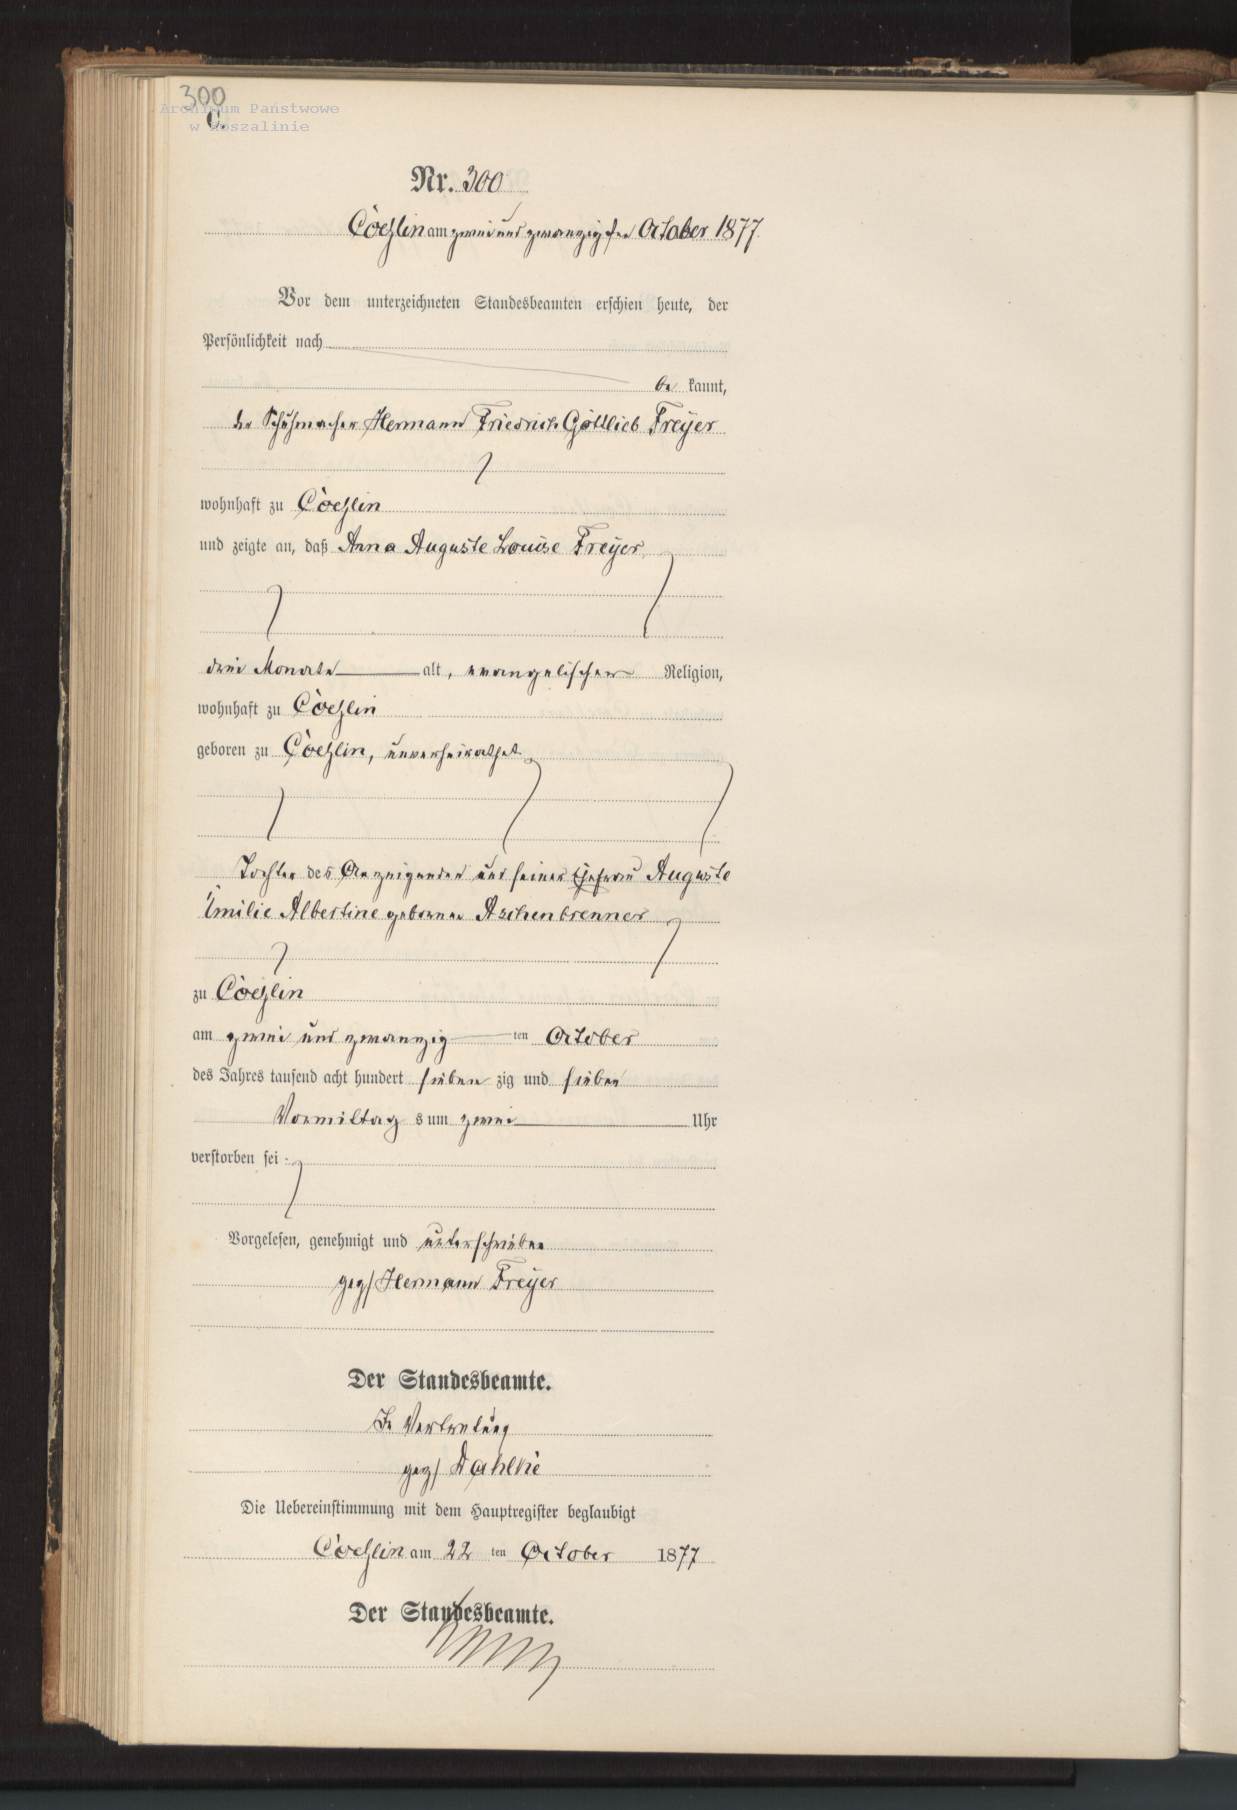 300
Archiwum Państwowe
w Koszalinie
C.
Nr. 300
Cöslin am zwei und zwanzigsten October 1877.
Vor dem unterzeichneten Standesbeamten erschien heute, der
Persönlichkeit nach
be kannt,
der Schuhmacher Hermann Friedrich Gottlieb Freyer
wohnhaft zu Cöslin
und zeigte an, daß Anna Auguste Louise Freyer
drei Monate alt, evangelischer Religion,
wohnhaft zu Cöslin
geboren zu Cöslin, unverheirathet
Tochter des Anzeigenden und seiner Ehefrau Auguste
Emilie Albertine geborenen Aschenbrenner
zu Cöslin
am zwei und zwanzig ten October
des Jahres tausend acht hundert sieben zig und sieben
Vormittag s um zwei Uhr
verstorben sei :
Vorgelesen, genehmigt und unterschrieben
gez/ Hermann Freyer
Der Standesbeamte.
In Vertretung
gez/ Dahlke
Die Uebereinstimmung mit dem Hauptregister beglaubigt
Cöslin am 22 ten October 1877
Der Standesbeamte.